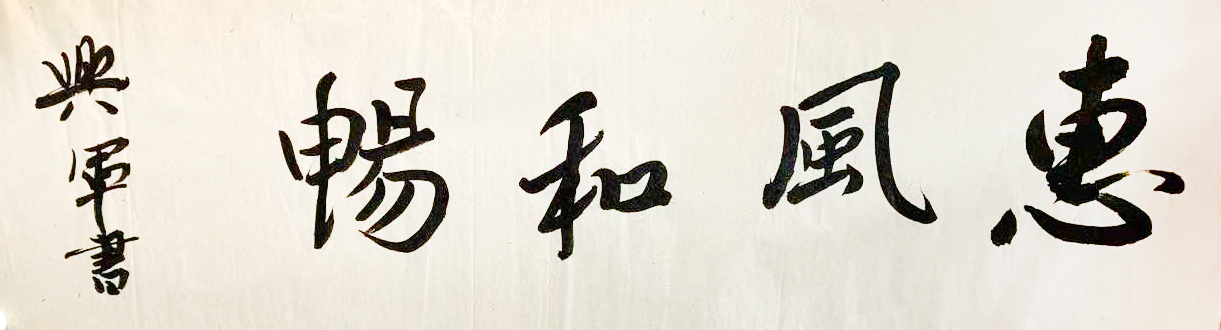 惠風和暢
興軍書